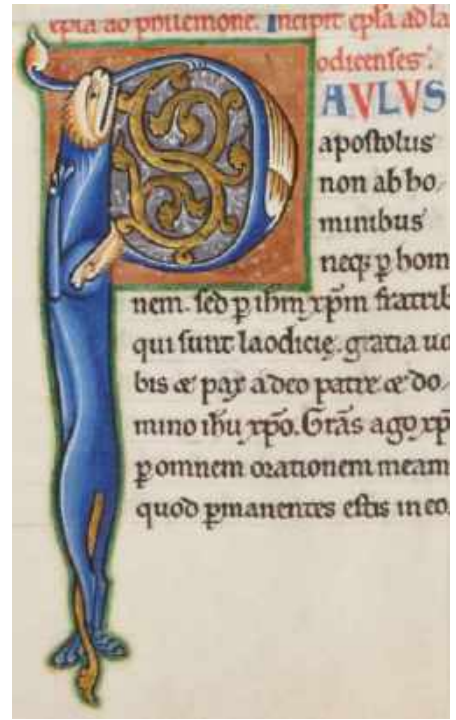 epła ad philemone. Incipit epła ad la
odicenses.
PAVLVS
apostolus
non ab ho,
minibus
neq; ꝑ hom
nem. sed ꝑ ihm̄ xp̄m fratrib
qui sunt laodicię. gratia uo
bis & pax a deo patre & do,
mino ihu xp̄o. Grās ago xp̄
ꝑ omnem orationem meam
quod ꝑmanentes estis in eo.